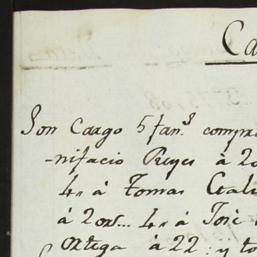 Ca
Son Cargo 5 fan.s compra
-nifacio Reyes à 20
4 s à Tomas Gali
à 20 rs... 4 s à José
Ortega à 22: y to